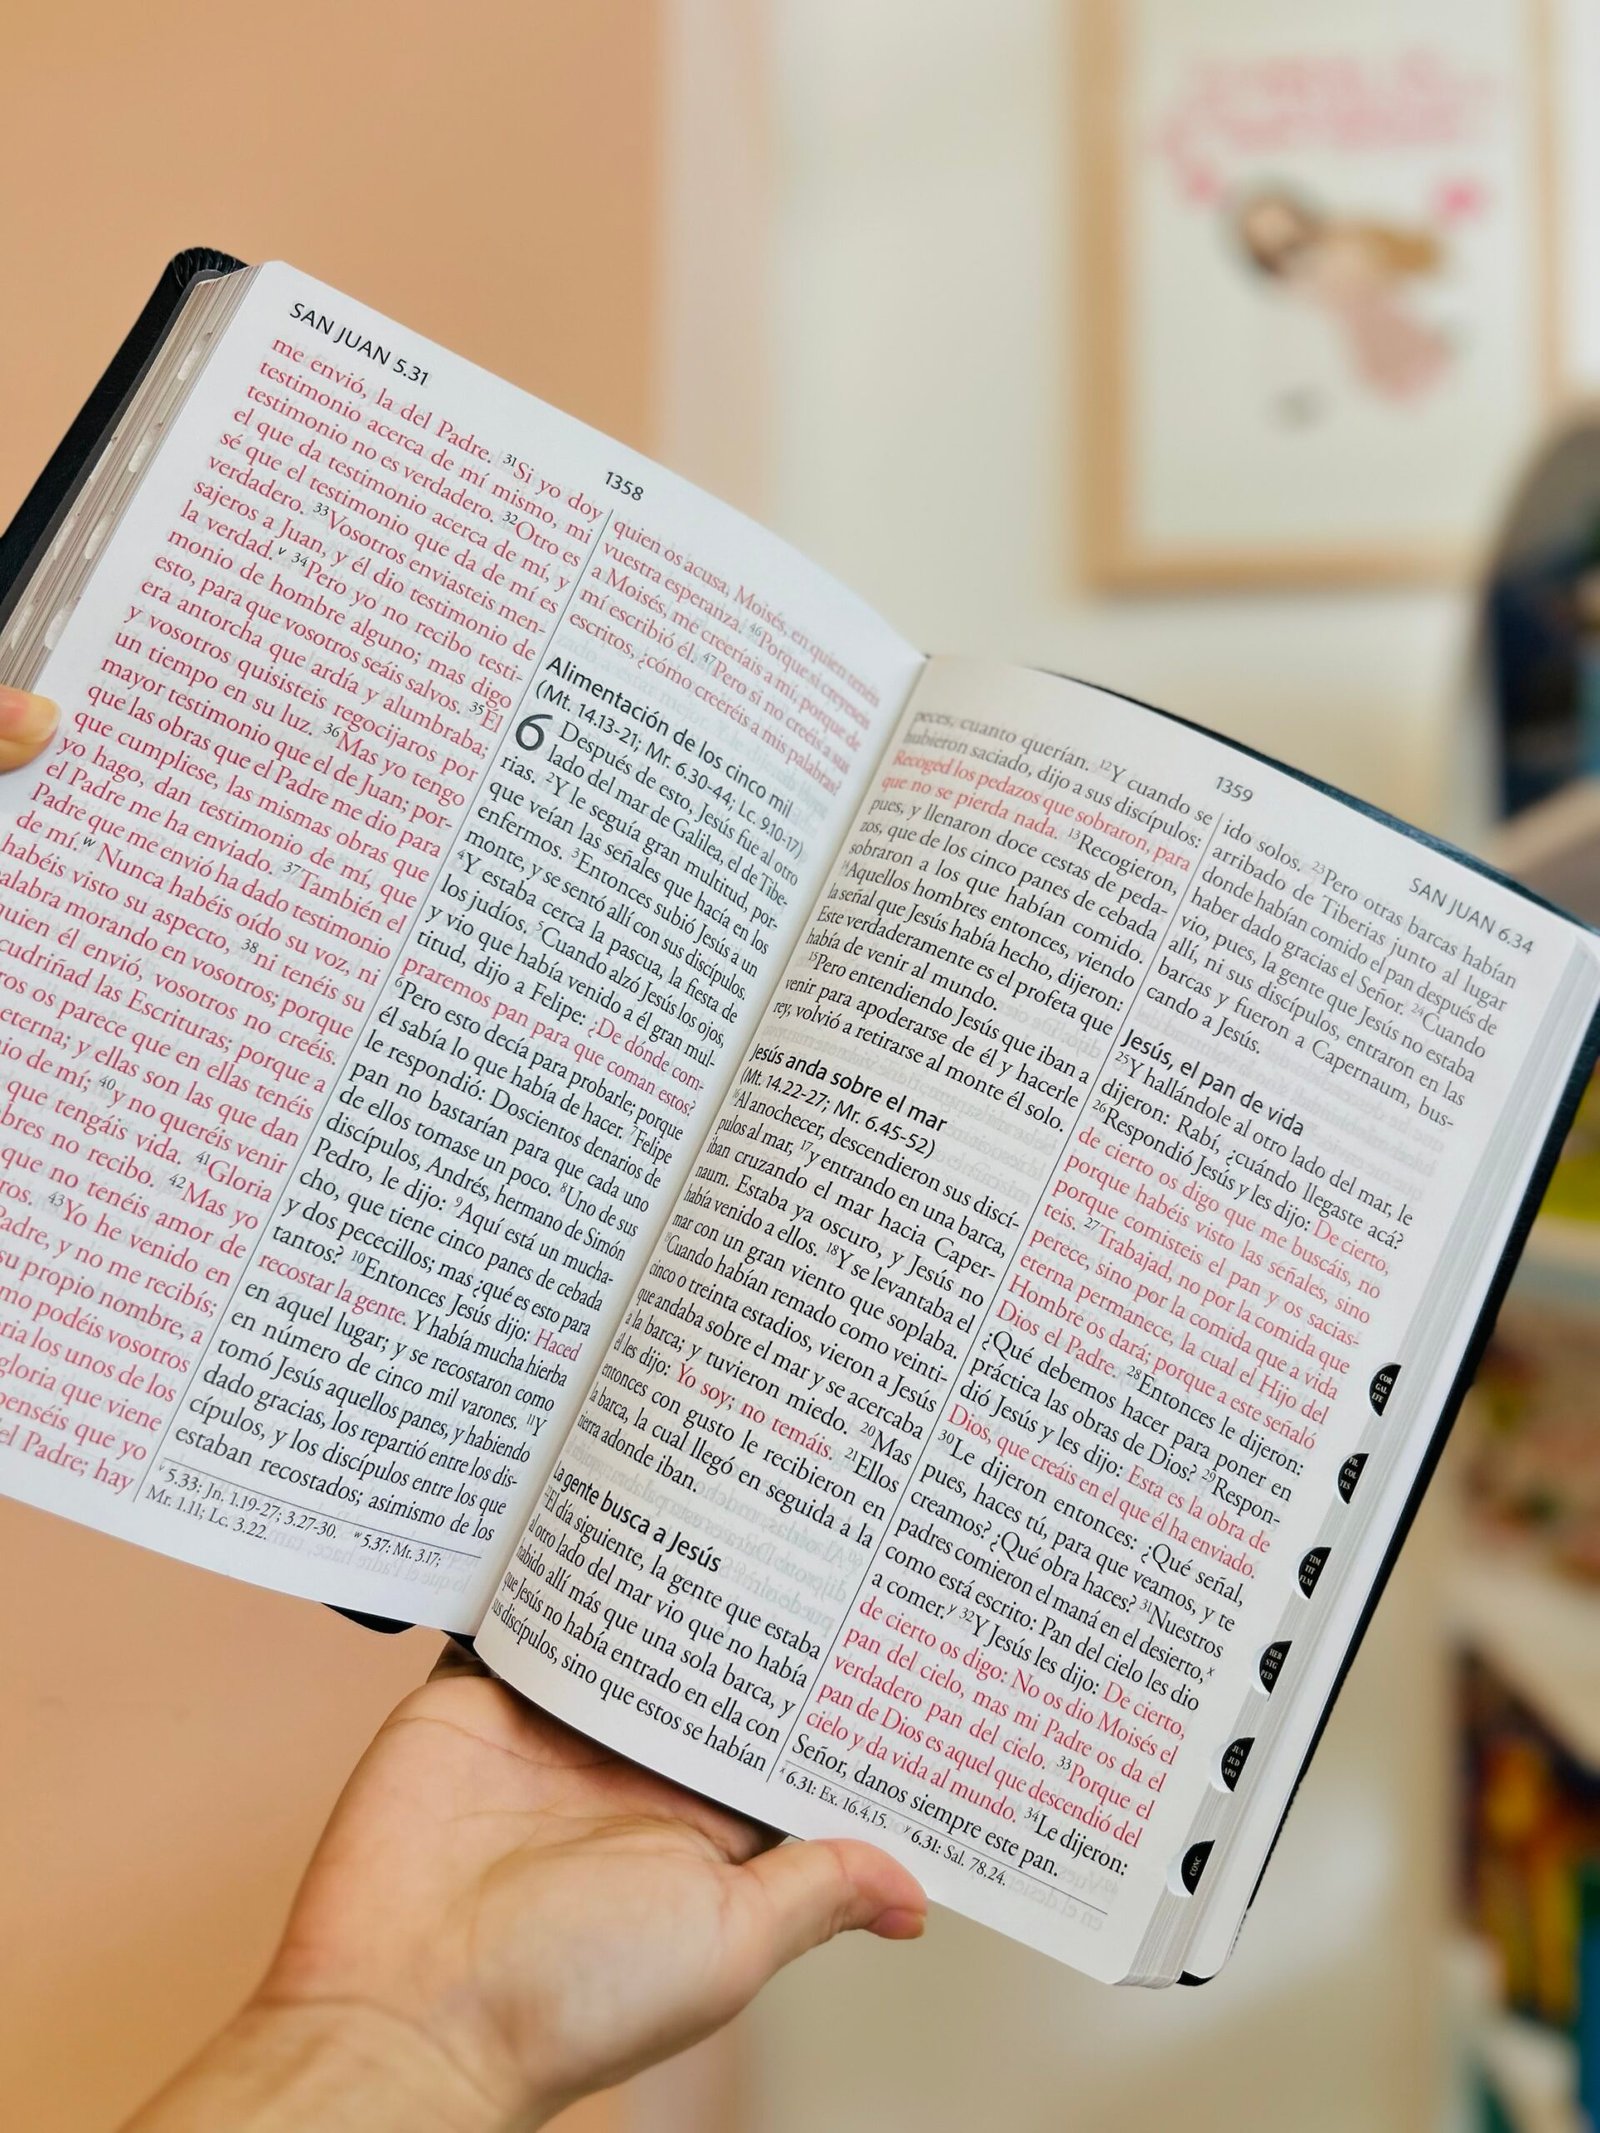 SAN JUAN 5.31
1358
me envió, la del Padre. 31Si yo doy
testimonio acerca de mí mismo, mi
testimonio no es verdadero. 32Otro es
el que da testimonio acerca de mí, y
sé que el testimonio que da de mí es
verdadero. 33Vosotros enviasteis men-
sajeros a Juan, y él dio testimonio de
la verdad.v 34Pero yo no recibo testi-
monio de hombre alguno; mas digo
esto, para que vosotros seáis salvos. 35Él
era antorcha que ardía y alumbraba;
y vosotros quisisteis regocijaros por
un tiempo en su luz. 36Mas yo tengo
mayor testimonio que el de Juan; por-
que las obras que el Padre me dio para
que cumpliese, las mismas obras que
yo hago, dan testimonio de mí, que
el Padre me ha enviado. 37También el
Padre que me envió ha dado testimonio
de mí.w Nunca habéis oído su voz, ni
habéis visto su aspecto, 38ni tenéis su
alabra morando en vosotros; porque
quien él envió, vosotros no creéis.
cudriñad las Escrituras; porque a
ros os parece que en ellas tenéis
eterna; y ellas son las que dan
io de mí; 40y no queréis venir
que tengáis vida. 41Gloria
bres no recibo. 42Mas yo
que no tenéis amor de
ros. 43Yo he venido en
Padre, y no me recibís;
su propio nombre, a
mo podéis vosotros
ria los unos de los
gloria que viene
penséis que yo
el Padre; hay
quien os acusa, Moisés, en quien tenéis
vuestra esperanza. 46Porque si creyeseis
a Moisés, me creeríais a mí, porque de
mí escribió él. 47Pero si no creéis a sus
escritos, ¿cómo creeréis a mis palabras?
Alimentación de los cinco mil
(Mt. 14.13-21; Mr. 6.30-44; Lc. 9.10-17)
6 Después de esto, Jesús fue al otro
lado del mar de Galilea, el de Tibe-
rias. 2Y le seguía gran multitud, por-
que veían las señales que hacía en los
enfermos. 3Entonces subió Jesús a un
monte, y se sentó allí con sus discípulos.
4Y estaba cerca la pascua, la fiesta de
los judíos. 5Cuando alzó Jesús los ojos,
y vio que había venido a él gran mul-
titud, dijo a Felipe: ¿De dónde com-
praremos pan para que coman estos?
6Pero esto decía para probarle; porque
él sabía lo que había de hacer. 7Felipe
le respondió: Doscientos denarios de
pan no bastarían para que cada uno
de ellos tomase un poco. 8Uno de sus
discípulos, Andrés, hermano de Simón
Pedro, le dijo: 9Aquí está un mucha-
cho, que tiene cinco panes de cebada
y dos pececillos; mas ¿qué es esto para
tantos? 10Entonces Jesús dijo: Haced
recostar la gente. Y había mucha hierba
en aquel lugar; y se recostaron como
en número de cinco mil varones. 11Y
tomó Jesús aquellos panes, y habiendo
dado gracias, los repartió entre los dis-
cípulos, y los discípulos entre los que
estaban recostados; asimismo de los
v 5.33: Jn. 1.19-27; 3.27-30. w 5.37: Mt. 3.17;
Mr. 1.11; Lc. 3.22.
1359
SAN JUAN 6.34
peces, cuanto querían. 12Y cuando se
hubieron saciado, dijo a sus discípulos:
Recoged los pedazos que sobraron, para
que no se pierda nada. 13Recogieron,
pues, y llenaron doce cestas de peda-
zos, que de los cinco panes de cebada
sobraron a los que habían comido.
14Aquellos hombres entonces, viendo
la señal que Jesús había hecho, dijeron:
Este verdaderamente es el profeta que
había de venir al mundo.
15Pero entendiendo Jesús que iban a
venir para apoderarse de él y hacerle
rey, volvió a retirarse al monte él solo.
Jesús anda sobre el mar
(Mt. 14.22-27; Mr. 6.45-52)
16Al anochecer, descendieron sus discí-
pulos al mar, 17y entrando en una barca,
iban cruzando el mar hacia Caper-
naum. Estaba ya oscuro, y Jesús no
había venido a ellos. 18Y se levantaba el
mar con un gran viento que soplaba.
19Cuando habían remado como veinti-
cinco o treinta estadios, vieron a Jesús
que andaba sobre el mar y se acercaba
a la barca; y tuvieron miedo. 20Mas
él les dijo: Yo soy; no temáis. 21Ellos
entonces con gusto le recibieron en
la barca, la cual llegó en seguida a la
tierra adonde iban.
La gente busca a Jesús
22El día siguiente, la gente que estaba
al otro lado del mar vio que no había
habido allí más que una sola barca, y
que Jesús no había entrado en ella con
sus discípulos, sino que estos se habían
ido solos. 23Pero otras barcas habían
arribado de Tiberias junto al lugar
donde habían comido el pan después de
haber dado gracias el Señor. 24Cuando
vio, pues, la gente que Jesús no estaba
allí, ni sus discípulos, entraron en las
barcas y fueron a Capernaum, bus-
cando a Jesús.
Jesús, el pan de vida
25Y hallándole al otro lado del mar, le
dijeron: Rabí, ¿cuándo llegaste acá?
26Respondió Jesús y les dijo: De cierto,
de cierto os digo que me buscáis, no
porque habéis visto las señales, sino
porque comisteis el pan y os sacias-
teis. 27Trabajad, no por la comida que
perece, sino por la comida que a vida
eterna permanece, la cual el Hijo del
Hombre os dará; porque a este señaló
Dios el Padre. 28Entonces le dijeron:
¿Qué debemos hacer para poner en
práctica las obras de Dios? 29Respon-
dió Jesús y les dijo: Esta es la obra de
Dios, que creáis en el que él ha enviado.
30Le dijeron entonces: ¿Qué señal,
pues, haces tú, para que veamos, y te
creamos? ¿Qué obra haces? 31Nuestros
padres comieron el maná en el desierto,x
como está escrito: Pan del cielo les dio
a comer.y 32Y Jesús les dijo: De cierto,
de cierto os digo: No os dio Moisés el
pan del cielo, mas mi Padre os da el
verdadero pan del cielo. 33Porque el
pan de Dios es aquel que descendió del
cielo y da vida al mundo. 34Le dijeron:
Señor, danos siempre este pan.
x 6.31: Ex. 16.4,15. y 6.31: Sal. 78.24.
COR
GAL
EFE
FIL
COL
TES
TIM
TIT
FLM
HEB
STG
PED
JUA
JUD
APO
CONC